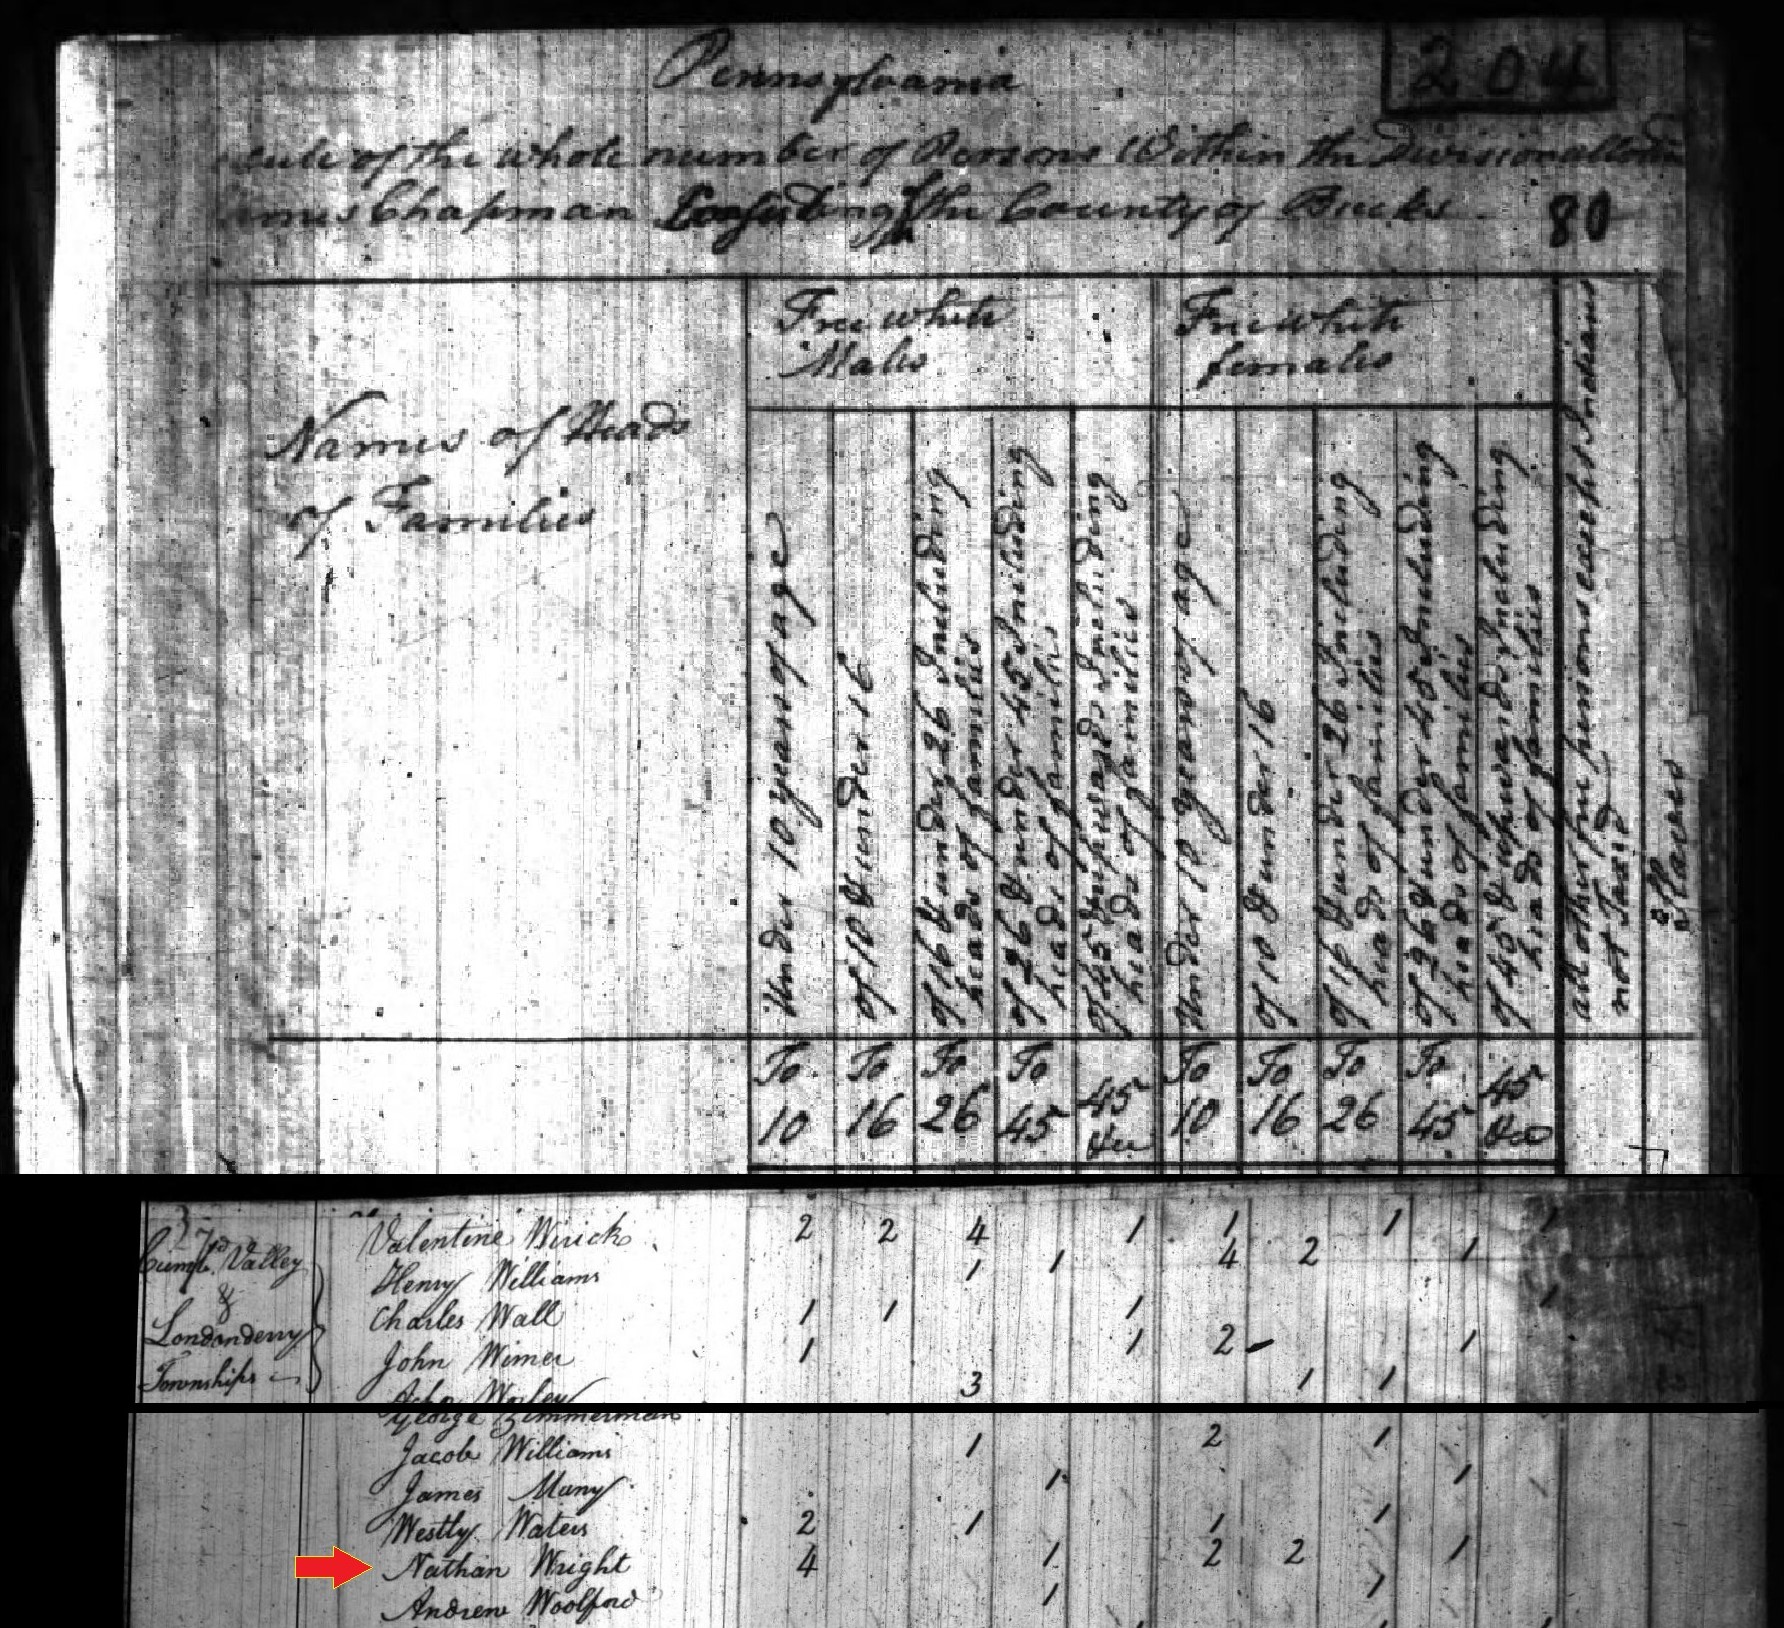 Pennsylvania
204
of the whole number of Persons Within the Division allotted
Chapman Consisting of the County of Bucks
80
Free white Males
Free white females
Names of Heads
of Families
Under 10 years of age
of 10 & under 16
of 16 & under 26 Including
heads of families
of 26 & under 45 Including
heads of families
of 45 & upwards Including
heads of families
Under 10 years of age
of 10 & under 16
of 16 & under 26 Including
heads of families
of 26 & under 45 Including
heads of families
of 45 & upwards Including
heads of families
all other free persons except Indians
not Taxed
Slaves
To 10 To 16 To 26 To 45 45 &c To 10 To 16 To 26 To 45 45 &c
Cumbd. Valley
&
Londonderry
Townships
Valentine Wirick 2 2 4 1 1 1 1
Henry Williams 1 1 4 2 1
Charles Wall 1 1 1 1
John Wimer 1 1 2 1
Worley 3 1 1
George Zimmerman
Jacob Williams 1 2 1
James Many 1 1
Westly Waters 2 1 1 1
Nathan Wright 4 1 2 2 1
Andrew Woolford 1 1